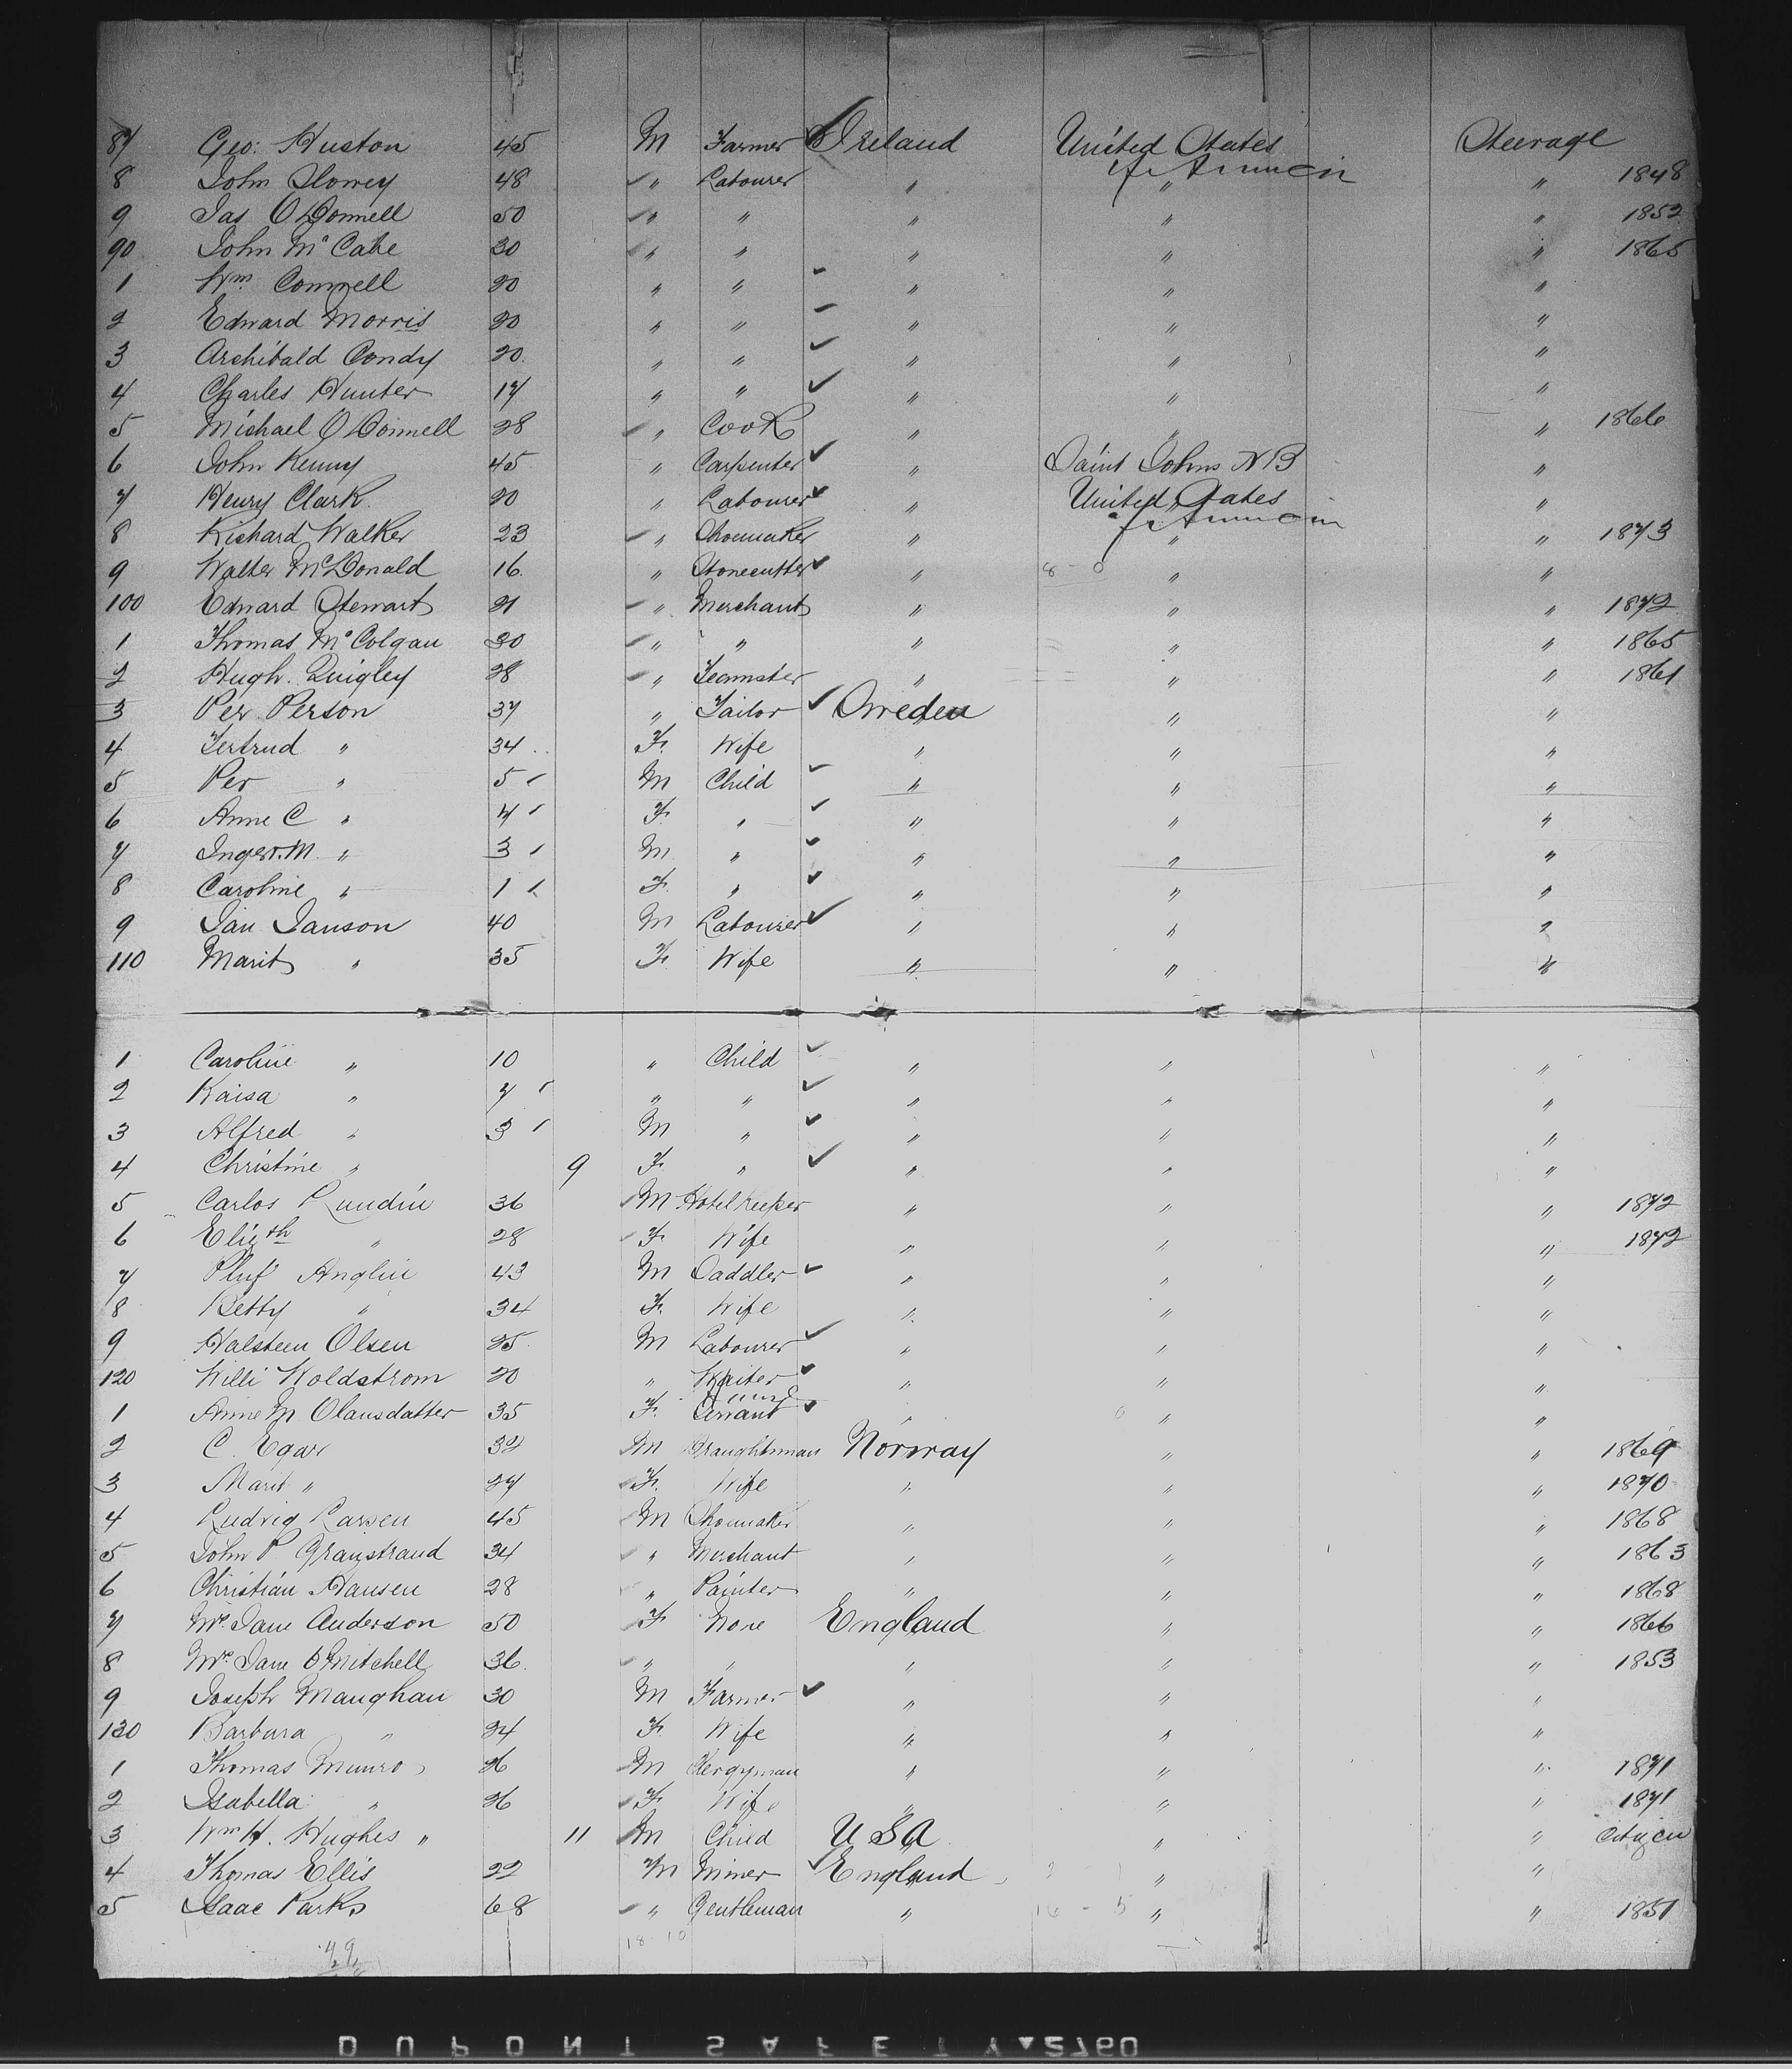 87 Geo: Huston 45 M Farmer Ireland United States Steerage
8 John 48 " Labourer " " " 1848
9 Jas O'Donnell 50 " " " " " 1852
90 John McCabe 30 " " " " " 1865
1 Wm Connell 20 " " " " "
2 Edward Morris 20 " " " " "
3 Archibald Condy 20 " " " " "
4 Charles Hunter 17 " " " " "
5 Michael O'Donnell 28 " Cook " " " 1866
6 John Kenny 45 " Carpenter " Saint Johns NB "
7 Henry Clark 20 " Labourer " United States "
8 Richard Walker 23 " Shoemaker " " " 1873
9 Walter McDonald 16 " Stonecutter " " "
100 Edward Stewart 21 " Merchant " " " 1872
1 Thomas McColgan 30 " " " " " 1865
2 Hugh Quigley 28 " Teamster " " " 1861
3 Per Person 37 " Tailor Sweden " "
4 Gertrud " 34 F. Wife " " "
5 Per " 5 M Child " " "
6 Anne C " 4 F. " " " "
7 Inger. M. " 3 M " " " "
8 Caroline " 1 F. " " " "
9 Jan Janson 40 M Labourer " " "
110 Marit " 35 F. Wife " " "
1 Caroline " 10 " Child " " "
2 Kaisa " 7 " " " " "
3 Alfred " 3 M " " " "
4 Christine " 9 F. " " " "
5 Carlos Lundin 36 M Hotelkeeper " " " 1872
6 Elizth " 28 F. Wife " " " 1872
7 Anglin 43 M Saddler " " "
8 Betty " 34 F. Wife " " "
9 Halsteen Olsen 25 M Labourer " " "
120 Willi Woldstrom 20 " Waiter " " "
1 Anne M Olausdatter 35 F. Servant " " "
2 C. Egar 32 M Draughtsman Norway " " 1869
3 Marit " 27 F. Wife " " " 1870
4 Ludvig Larsen 45 M Shoemaker " " " 1868
5 John P Granstrand 34 " Merchant " " " 1863
6 Christian Hansen 28 " Painter " " " 1868
7 Mrs Jane Anderson 50 F None England " " 1866
8 Mrs Jane Mitchell 36 " " " " " 1853
9 Joseph Maughan 30 M Farmer " " "
130 Barbara " 24 F. Wife " " "
1 Thomas Munro 26 M Clergyman " " " 1871
2 Isabella " 26 F Wife " " " 1871
3 Wm H. Hughes " 11 M Child USA " " Citizen
4 Thomas Ellis 22 M Miner England " "
5 Isaac Parks 68 " Gentleman " " " 1851
49
18 10
DUPONT SAFETY 2760